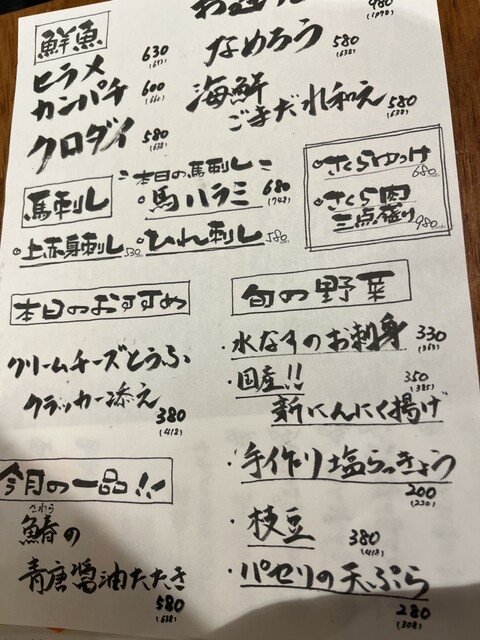 鮮魚
ヒラメ 630
(693)
カンパチ 600
(660)
クロダイ 580
(638)
980
(1078)
なめろう 580
(638)
海鮮
ごまだれ和え 580
(638)
馬刺し
~本日の馬刺し~
・馬ハラミ 680
(748)
・上赤身刺し 530
・ひれ刺し 580
・さくらゆっけ
680
・さくら肉
三点盛り
980
本日のおすすめ
クリームチーズとうふ
クラッカー添え
380
(418)
今月の一品!!
さわら
鰆の
青唐醤油たたき
580
(638)
旬の野菜
・水なすのお刺身 330
(363)
・国産!! 350
(385)
新にんにく揚げ
・手作り塩らっきょう
200
(220)
・枝豆 380
(418)
・パセリの天ぷら
280
(308)